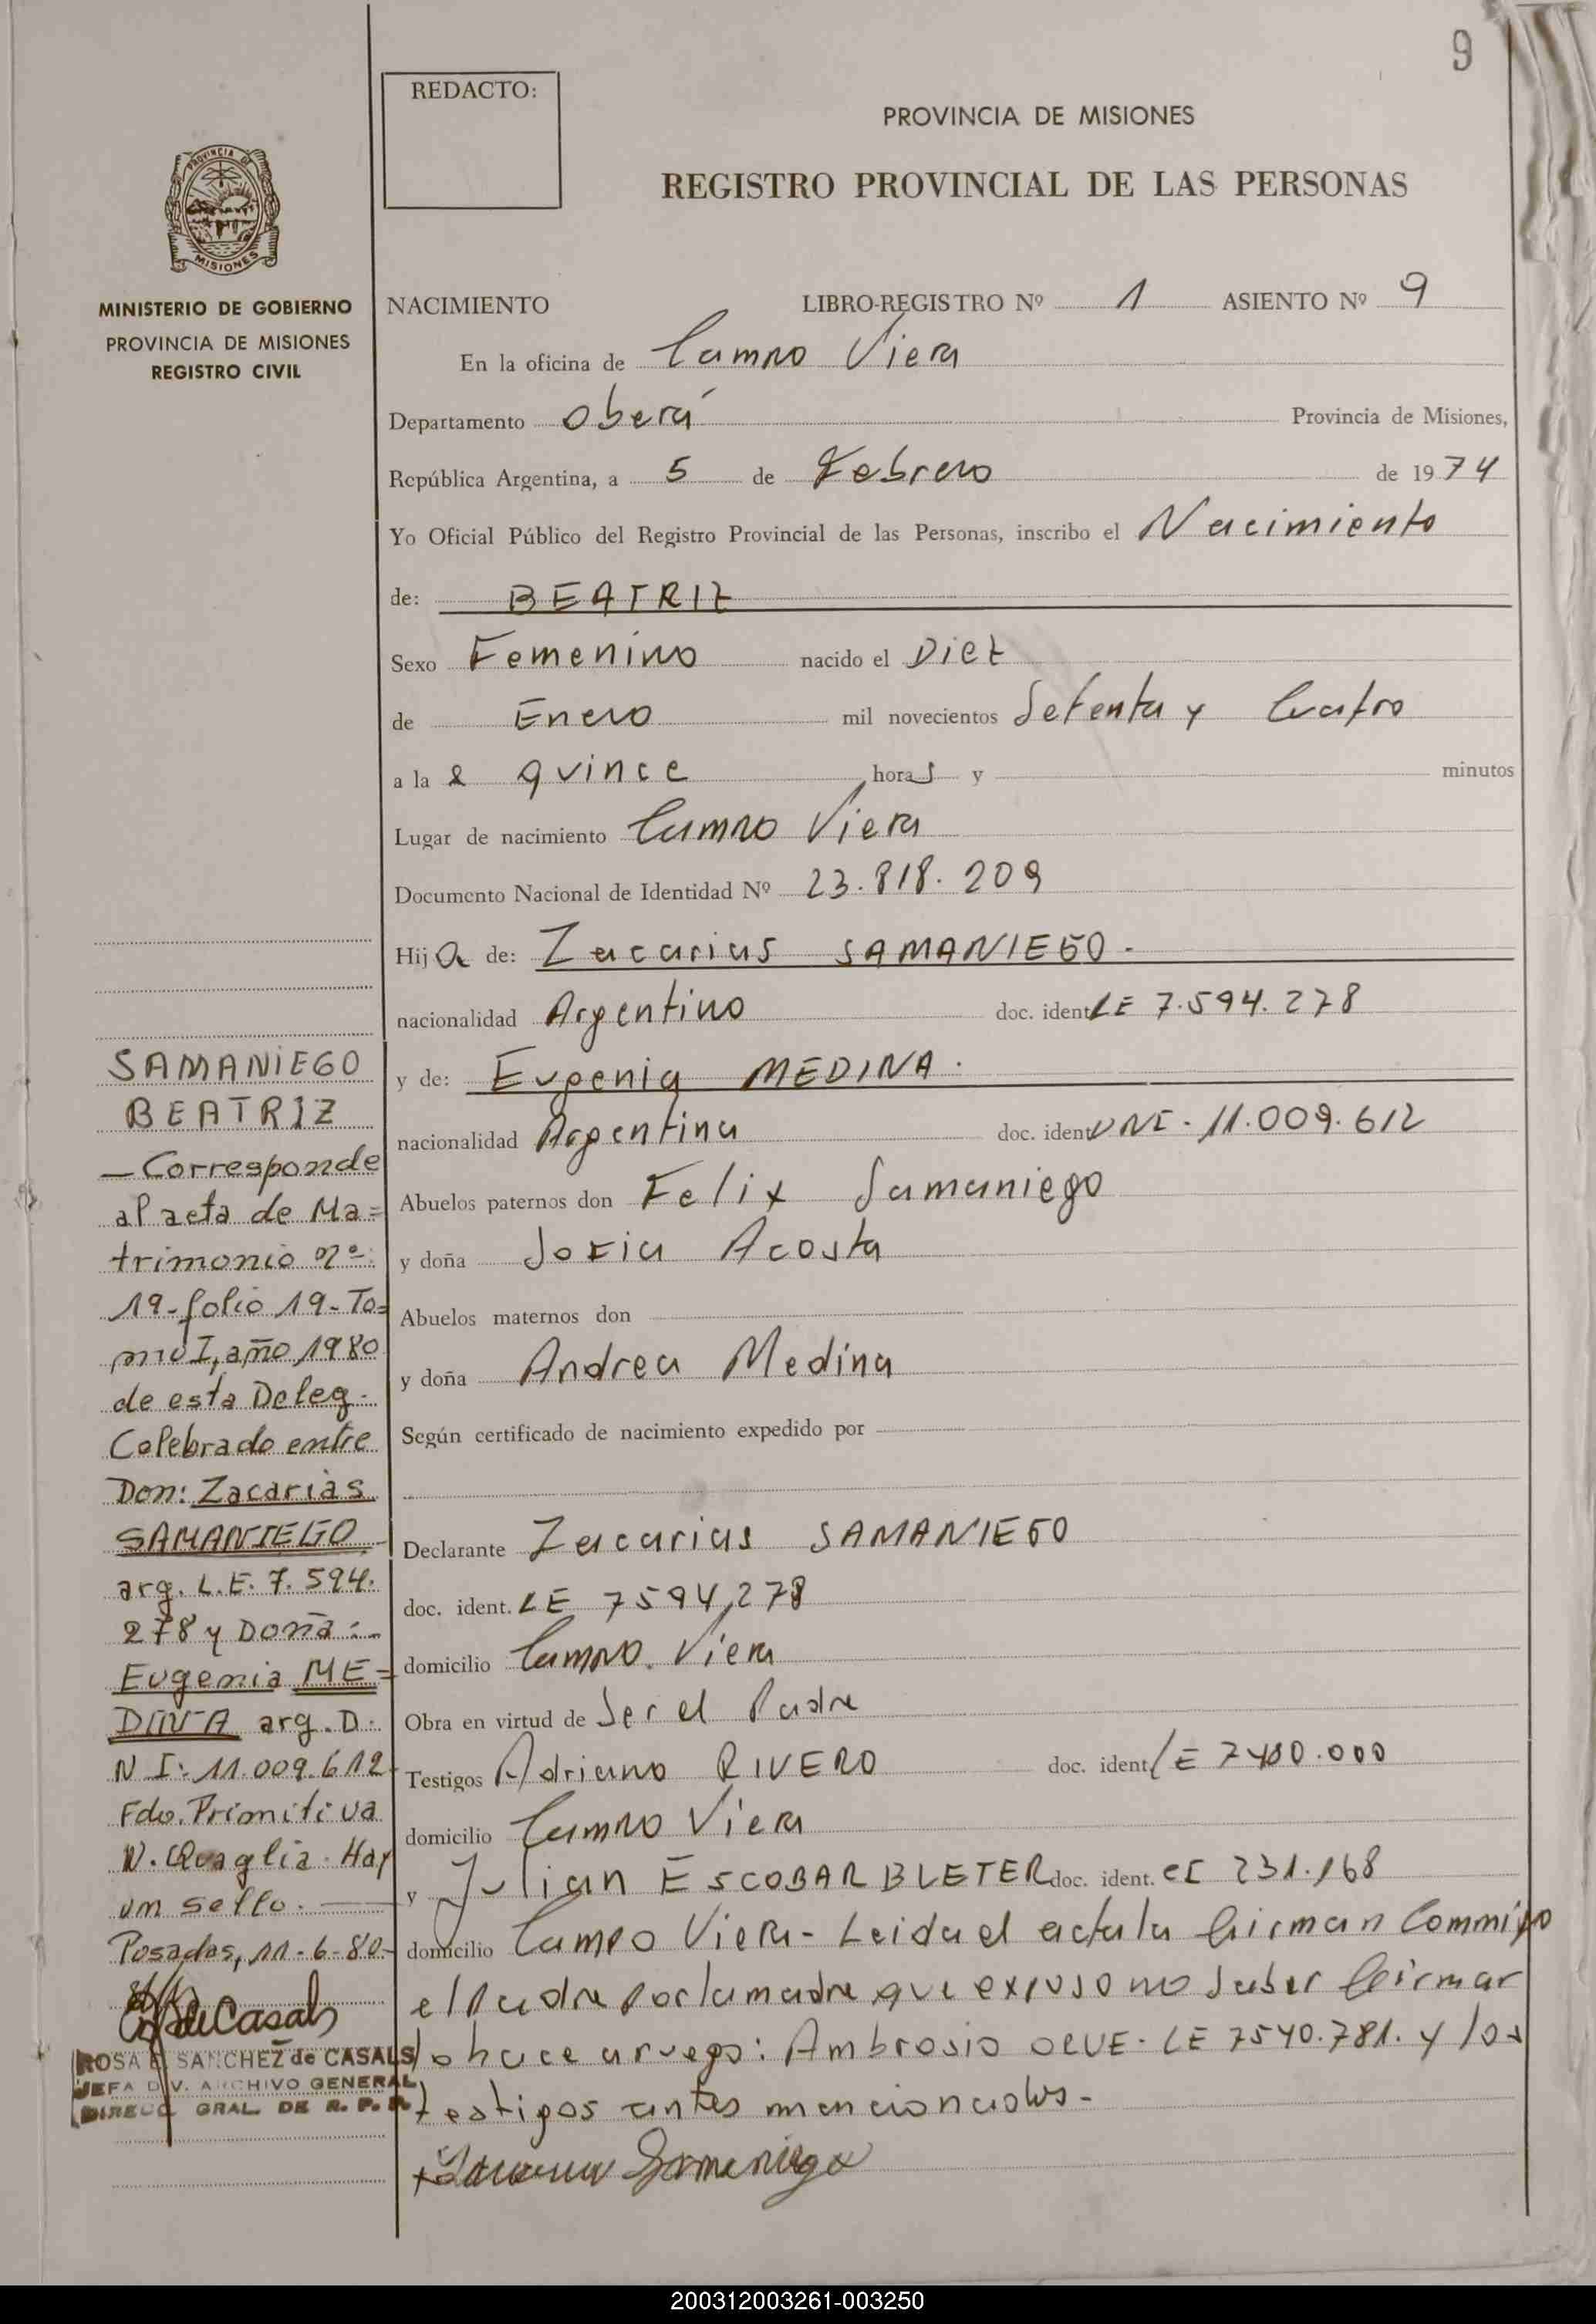 9
REDACTO:
PROVINCIA DE MISIONES
REGISTRO PROVINCIAL DE LAS PERSONAS
PROVINCIA DE
MISIONES
MINISTERIO DE GOBIERNO
PROVINCIA DE MISIONES
REGISTRO CIVIL
NACIMIENTO LIBRO-REGISTRO Nº 1 ASIENTO Nº 9
En la oficina de Campo Viera
Departamento Oberá Provincia de Misiones,
República Argentina, a 5 de Febrero de 1974
Yo Oficial Público del Registro Provincial de las Personas, inscribo el Nacimiento
de: BEATRIZ
Sexo Femenino nacido el Diez
de Enero mil novecientos Setenta y Cuatro
a la s quince horas y minutos
Lugar de nacimiento Campo Viera
Documento Nacional de Identidad Nº 23.818.209
Hija de: Zacarias SAMANIEGO.-
nacionalidad Argentino doc. ident LE 7.594.278
y de: Eugenia MEDINA.
nacionalidad Argentina doc. ident DNI - 11.009.612
Abuelos paternos don Felix Samaniego
y doña Sofia Acosta
Abuelos maternos don
y doña Andrea Medina
Según certificado de nacimiento expedido por
Declarante Zacarias SAMANIEGO
doc. ident. LE 7594,278
domicilio Campo. Viera
Obra en virtud de Ser el Padre
Testigos Adriano RIVERO doc. ident LE 7480.000
domicilio Campo Viera
y Julian ESCOBAR BLETER doc. ident. CI 231.168
domicilio Campo Viera - Leida el acta la firman Commigo
el Padre Por la madre que expuso no saber firmar
lo hace a ruego: Ambrosio OLVE - LE 7540.781. y los
testigos antes mencionados-
Samaniego
SAMANIEGO
BEATRIZ
— Corresponde
al acta de Ma=
trimonio nº:
19-folio 19-To=
mo I, año 1980
de esta Deleg.
Celebrado entre
Don: Zacarias
SAMANIEGO
arg. L.E. 7.594.
278 y Doña:
Eugenia ME=
DINA arg. D.
N I: 11.009.612
Fdo. Primitiva
N. Quaglia. Hay
un sello. —
Posadas, 11-6-80.-
de Casals
ROSA E. SANCHEZ de CASALS
JEFA DIV. ARCHIVO GENERAL
DIRECC. GRAL. DE R. P. P.
200312003261-003250